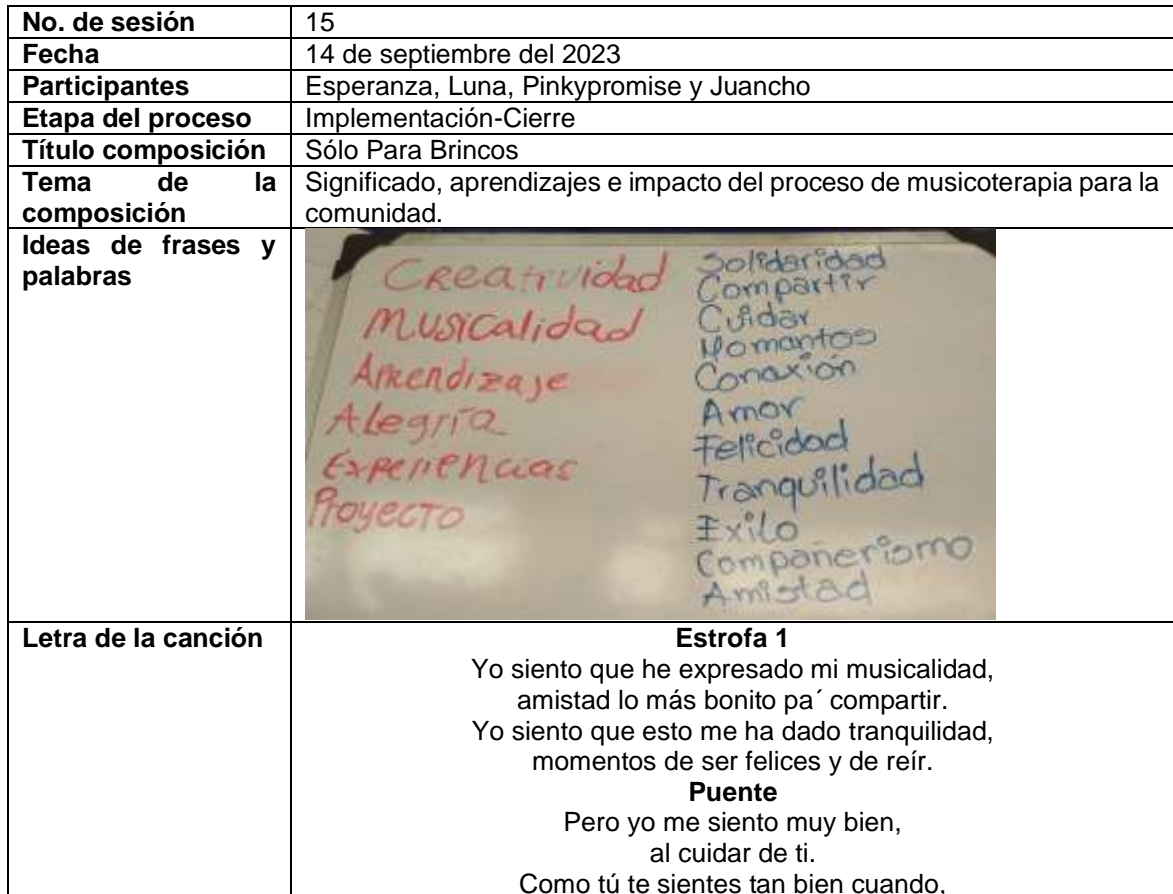 No. de sesión 15
Fecha 14 de septiembre del 2023
Participantes Esperanza, Luna, Pinkypromise y Juancho
Etapa del proceso Implementación-Cierre
Título composición Sólo Para Brincos
Tema de la composición Significado, aprendizajes e impacto del proceso de musicoterapia para la comunidad.
Ideas de frases y palabras
Creatividad
Musicalidad
Aprendizaje
Alegría
Experiencias
Proyecto
Solidaridad
Compartir
Cuidar
Momantos
Conaxión
Amor
Felicidad
Tranquilidad
Exilo
Compañerismo
Amistad
Letra de la canción
Estrofa 1
Yo siento que he expresado mi musicalidad,
amistad lo más bonito pa´ compartir.
Yo siento que esto me ha dado tranquilidad,
momentos de ser felices y de reír.
Puente
Pero yo me siento muy bien,
al cuidar de ti.
Como tú te sientes tan bien cuando,